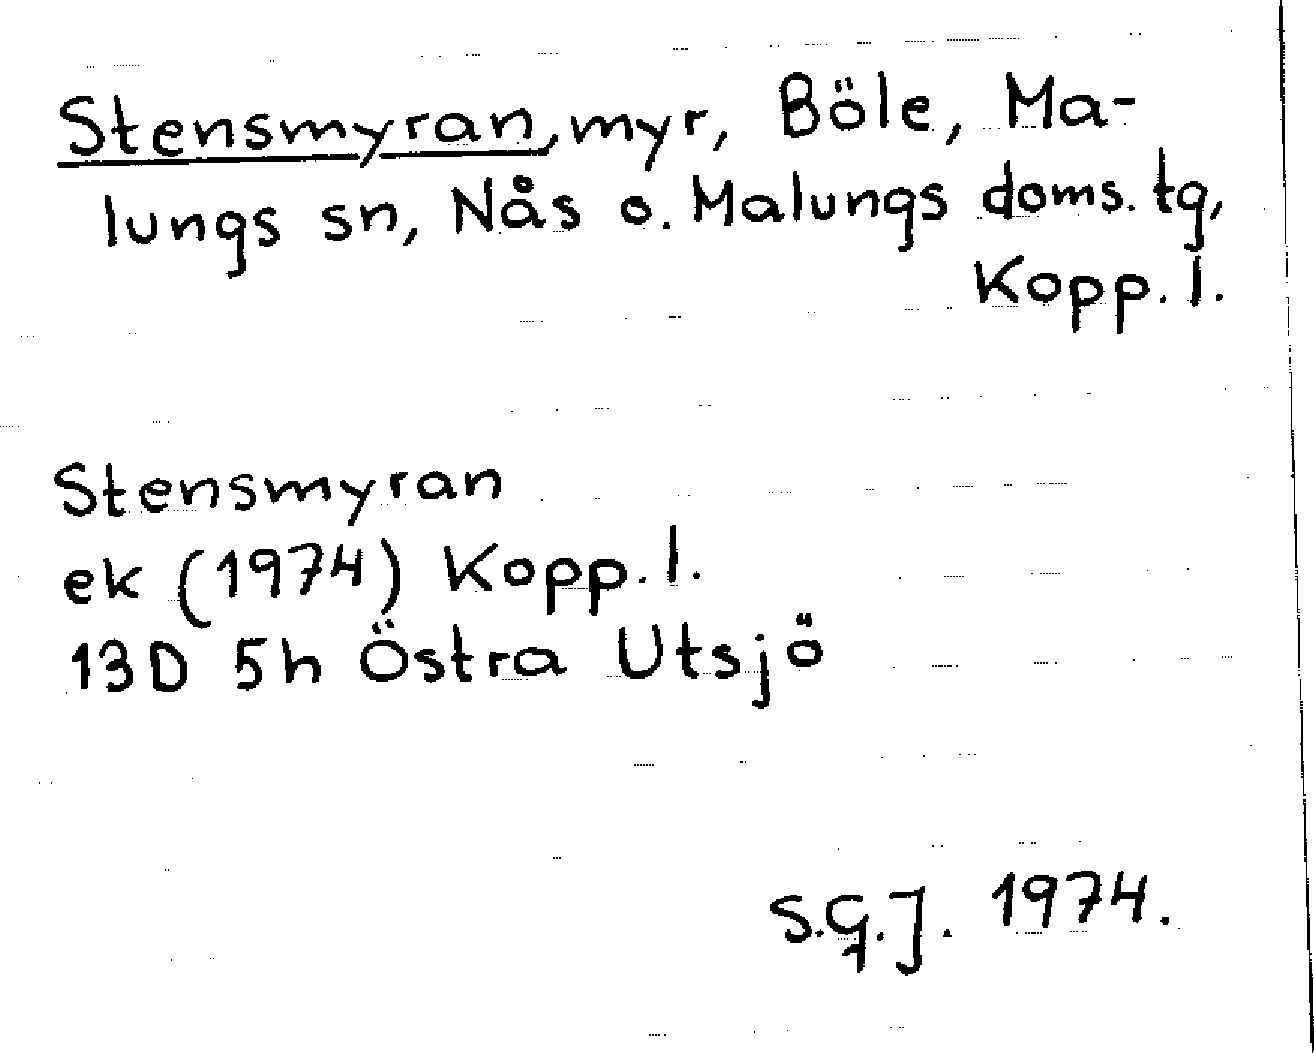 Stensmyran, myr, Böle, Ma-
lungs sn, Nås o. Malungs doms. tg,
Kopp. l.
Stensmyran
ek (1974) Kopp. l.
13D 5h Östra Utsjö
S.G.J. 1974.